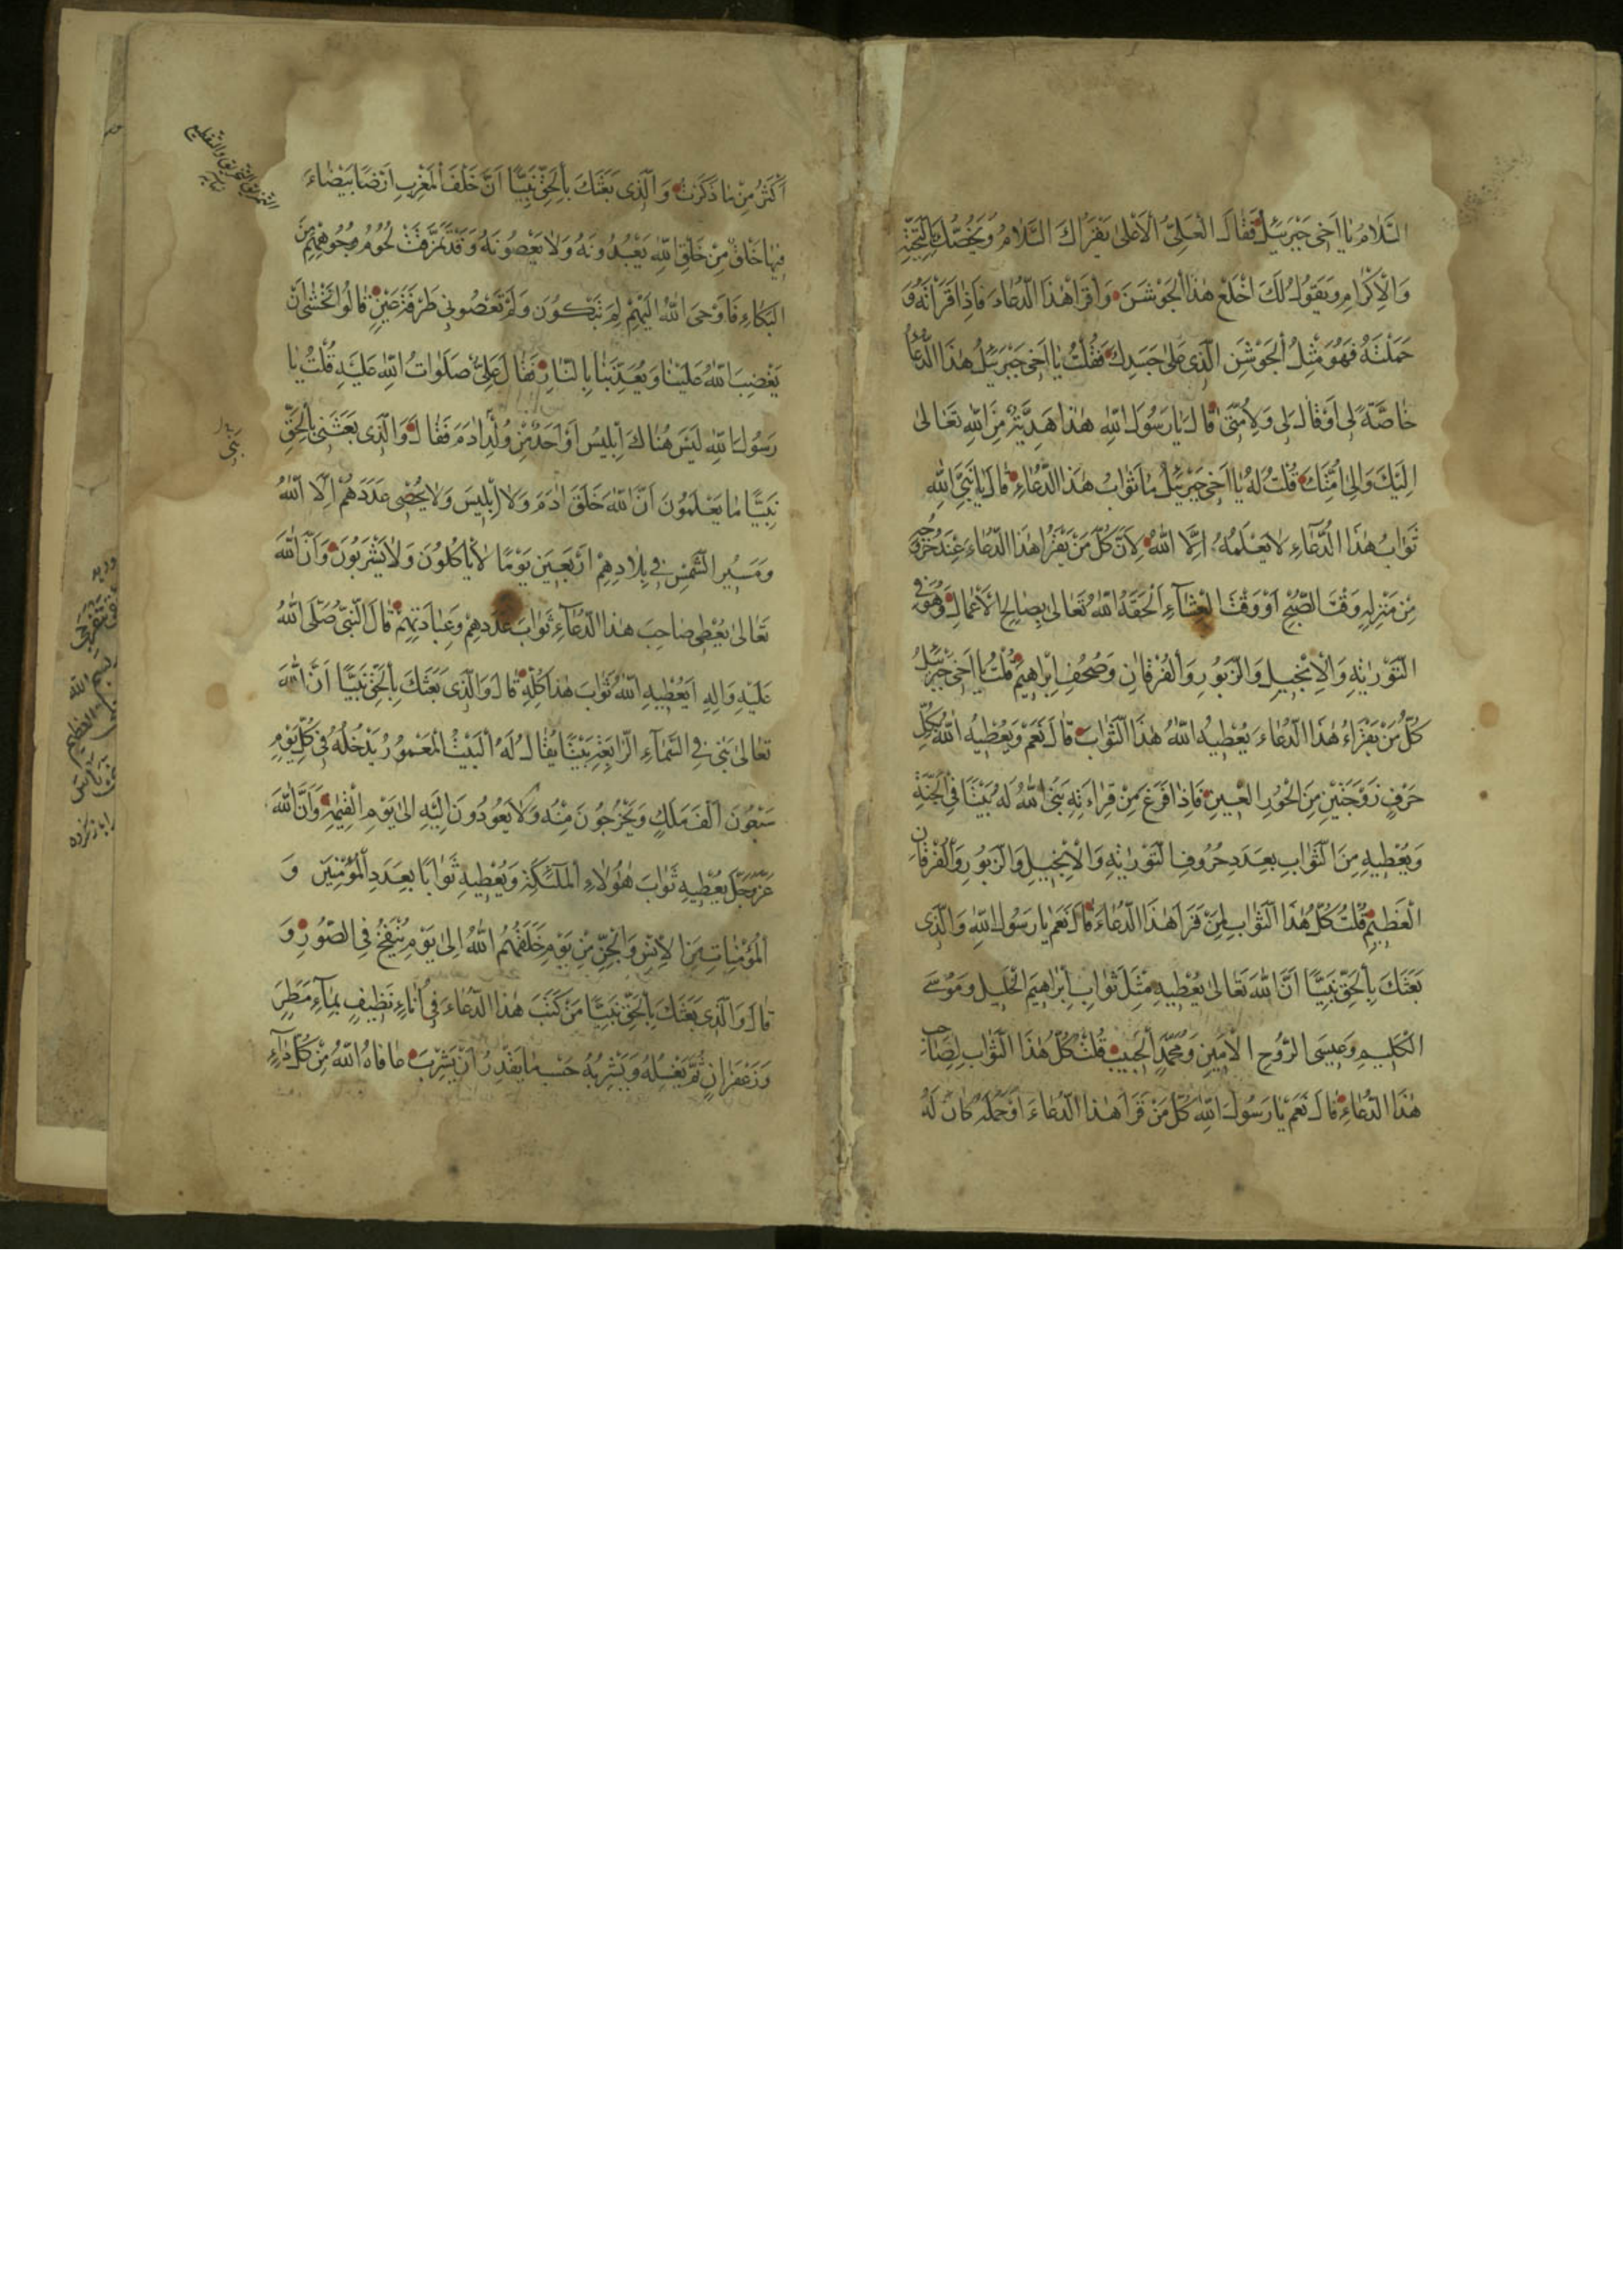 السَّلامُ يٰا اَخى جَبْرَئيلُ فَقٰالَ الْعَلِىُّ الْاَعْلىٰ يَقْرَاُكَ السَّلامُ وَيَخُصُّكَ بِالتَّحِيَّةِ
وَالْاِكْرٰامِ وَيَقُولُ لَكَ اخْلَعْ هٰذَا الْجَوْشَنَ وَاقْرَأْ هٰذَا الدُّعٰاءَ فَاِذٰا قَرَأْتَهُ وَ
حَمَلْتَهُ فَهُوَ مِثْلُ الْجَوْشَنِ الَّذى عَلىٰ جَسَدِكَ فَقُلْتُ يٰا اَخى جَبْرَئيلُ هٰذَا الدُّعٰاءُ
خٰاصَّةً لى اَوْ قٰالَ لى وَلِاُمَّتى قٰالَ يٰا رَسُولَ اللّٰهِ هٰذٰا هَدِيَّةٌ مِنَ اللّٰهِ تَعٰالىٰ
اِلَيْكَ وَاِلىٰ اُمَّتِكَ قُلْتُ لَهُ يٰا اَخى جَبْرَئيلُ مٰا ثَوٰابُ هٰذَا الدُّعٰاءِ قٰالَ يٰا نَبِىَّ اللّٰهِ
ثَوٰابُ هٰذَا الدُّعٰاءِ لا يَعْلَمُهُ اِلَّا اللّٰهُ لِاَنَّ كُلَّ مَنْ يَقْرَأُ هٰذَا الدُّعٰاءَ عِنْدَ خُرُوجِهِ
مِنْ مَنْزِلِهِ وَقْتَ الصُّبْحِ اَوْ وَقْتَ الْعِشٰآءِ اَلْحَقَهُ اللّٰهُ تَعٰالىٰ بِصٰالِحِ الْاَعْمٰالِ وَهُوَ فِى
التَّوْرٰيةِ وَالْاِنْجيلِ وَالزَّبُورِ وَالْفُرْقٰانِ وَصُحُفِ اِبْرٰاهيمَ قُلْتُ يٰا اَخى جَبْرَئيلُ
كُلُّ مَنْ يَقْرَاءُ هٰذَا الدُّعٰاءَ يُعْطيهِ اللّٰهُ هٰذَا الثَّوٰابَ قٰالَ نَعَمْ وَيُعْطيهِ اللّٰهُ بِكُلِّ
حَرْفٍ زَوْجَتَيْنِ مِنَ الْحُورِ الْعينِ فَاِذٰا فَرَغَ مِنْ قِرٰاءَتِهِ بَنَى اللّٰهُ لَهُ بَيْتًا فِى الْجَنَّةِ
وَيُعْطيهِ مِنَ الثَّوٰابِ بِعَدَدِ حُرُوفِ التَّوْرٰيةِ وَالْاِنْجيلِ وَالزَّبُورِ وَالْفُرْقٰانِ
الْعَظيمِ قُلْتُ كُلُّ هٰذَا الثَّوٰابِ لِمَنْ قَرَأَ هٰذَا الدُّعٰاءَ قٰالَ نَعَمْ يٰا رَسُولَ اللّٰهِ وَالَّذى
بَعَثَكَ بِالْحَقِّ نَبِيًّا اَنَّ اللّٰهَ تَعٰالىٰ يُعْطيهِ مِثْلَ ثَوٰابِ اِبْرٰاهيمَ الْخَليلِ وَمُوسىٰ
الْكَليمِ وَعيسَى الرُّوحِ الْاَمينِ وَمُحَمَّدٍ الْحَبيبِ قُلْتُ كُلُّ هٰذَا الثَّوٰابِ لِصٰاحِبِ
هٰذَا الدُّعٰاءِ قٰالَ نَعَمْ يٰا رَسُولَ اللّٰهِ كُلُّ مَنْ قَرَأَ هٰذَا الدُّعٰاءَ اَوْ حَمَلَهُ كٰانَ لَهُ
اَكْثَرُ مِنْ مٰا ذَكَرْتُ وَالَّذى بَعَثَكَ بِالْحَقِّ نَبِيًّا اَنَّ خَلْفَ الْمَغْرِبِ اَرْضًا بَيْضٰاءَ
فيهٰا خَلْقٌ مِنْ خَلْقِ اللّٰهِ يَعْبُدُونَهُ وَلا يَعْصُونَهُ وَقَدْ تَمَزَّقَتْ لُحُومُ وُجُوهِهِمْ مِنَ
الْبُكٰاءِ فَاَوْحَى اللّٰهُ اِلَيْهِمْ لِمَ تَبْكُونَ وَلَمْ تَعْصُونى طَرْفَةَ عَيْنٍ قٰالُوا نَخْشىٰ اَنْ
يَغْضِبَ اللّٰهُ عَلَيْنٰا وَيُعَذِّبَنٰا بِالنّٰارِ فَقٰالَ عَلِىٌّ صَلَوٰاتُ اللّٰهِ عَلَيْهِ قُلْتُ يٰا
رَسُولَ اللّٰهِ لَيْسَ هُنٰاكَ اِبْليسُ اَوْ اَحَدٌ مِنْ وُلْدِ اٰدَمَ فَقٰالَ وَالَّذى بَعَثَنى بِالْحَقِّ
نَبِيًّا مٰا يَعْلَمُونَ اَنَّ اللّٰهَ خَلَقَ اٰدَمَ وَلا اِبْليسَ وَلا يُحْصى عَدَدَهُمْ اِلَّا اللّٰهُ
وَمَسيرُ الشَّمْسِ فى بِلادِهِمْ اَرْبَعينَ يَوْمًا لا يَأْكُلُونَ وَلا يَشْرَبُونَ وَاَنَّ اللّٰهَ
تَعٰالىٰ يُعْطى صٰاحِبَ هٰذَا الدُّعٰآءِ ثَوٰابَ عَدَدِهِمْ وَعِبٰادَتِهِمْ قٰالَ النَّبِىُّ صَلَّى اللّٰهُ
عَلَيْهِ وَاٰلِهِ اَيُعْطيهِ اللّٰهُ ثَوٰابَ هٰذٰا كُلِّهِ قٰالَ وَالَّذى بَعَثَكَ بِالْحَقِّ نَبِيًّا اَنَّ اللّٰهَ
تَعٰالىٰ بَنىٰ فِى السَّمٰآءِ الرّٰابِعَةِ بَيْتًا يُقٰالُ لَهُ الْبَيْتُ الْمَعْمُورُ يَدْخُلُهُ فى كُلِّ يَوْمٍ
سَبْعُونَ اَلْفَ مَلَكٍ وَيَخْرُجُونَ مِنْهُ وَلا يَعُودُونَ اِلَيْهِ اِلىٰ يَوْمِ الْقِيٰمَةِ وَاَنَّ اللّٰهَ
عَزَّ وَجَلَّ يُعْطيهِ ثَوٰابَ هٰؤُلاءِ الْمَلٰئِكَةِ وَيُعْطيهِ ثَوٰابًا بِعَدَدِ الْمُؤْمِنينَ وَ
الْمُؤْمِنٰاتِ مِنَ الْاِنْسِ وَالْجِنِّ مِنْ يَوْمِ خَلَقَهُمُ اللّٰهُ اِلىٰ يَوْمِ يُنْفَخُ فِى الصُّورِ وَ
قٰالَ وَالَّذى بَعَثَكَ بِالْحَقِّ نَبِيًّا مَنْ كَتَبَ هٰذَا الدُّعٰاءَ فى اِنٰاءٍ نَظيفٍ بِمٰآءِ مَطَرٍ
وَزَعْفَرٰانٍ ثُمَّ يَغْسِلُهُ وَيَشْرِبُهُ حَسْبَ مٰا يَقْدِرُ اَنْ يَشْرِبَ عٰافٰاهُ اللّٰهُ مِنْ كُلِّ دٰآءٍ
بسم الله